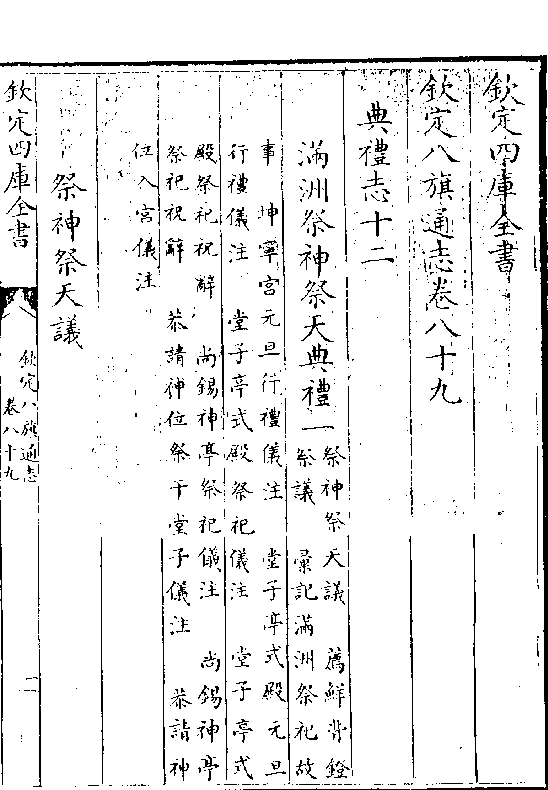 欽定四庫全書
欽定八旗通志卷八十九
典禮志十二
滿洲祭神祭天典禮一
祭神祭天議　薦鮮背鐙
祭議　彙記滿洲祭祀故
事　坤寧宮元旦行禮儀注　堂子亭式殿元旦
行禮儀注　堂子亭式殿祭祀儀注　堂子亭式
殿祭祀祝辭　尚錫神亭祭祀儀注　尚錫神亭
祭祀祝辭　恭請神位祭于堂子儀注　恭請神
位入宮儀注
祭神祭天議
欽定四庫全書
欽定八旗通志
卷八十九
一